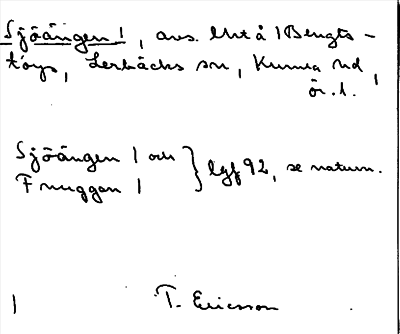 Sjöängen l, avs. Utå l Bengts-
töys, Lerbäcks sn, Kumla hd,
ör. l.
Sjöängen l och
F muggan l } lgf 92, se naturn.
T. Ericsson